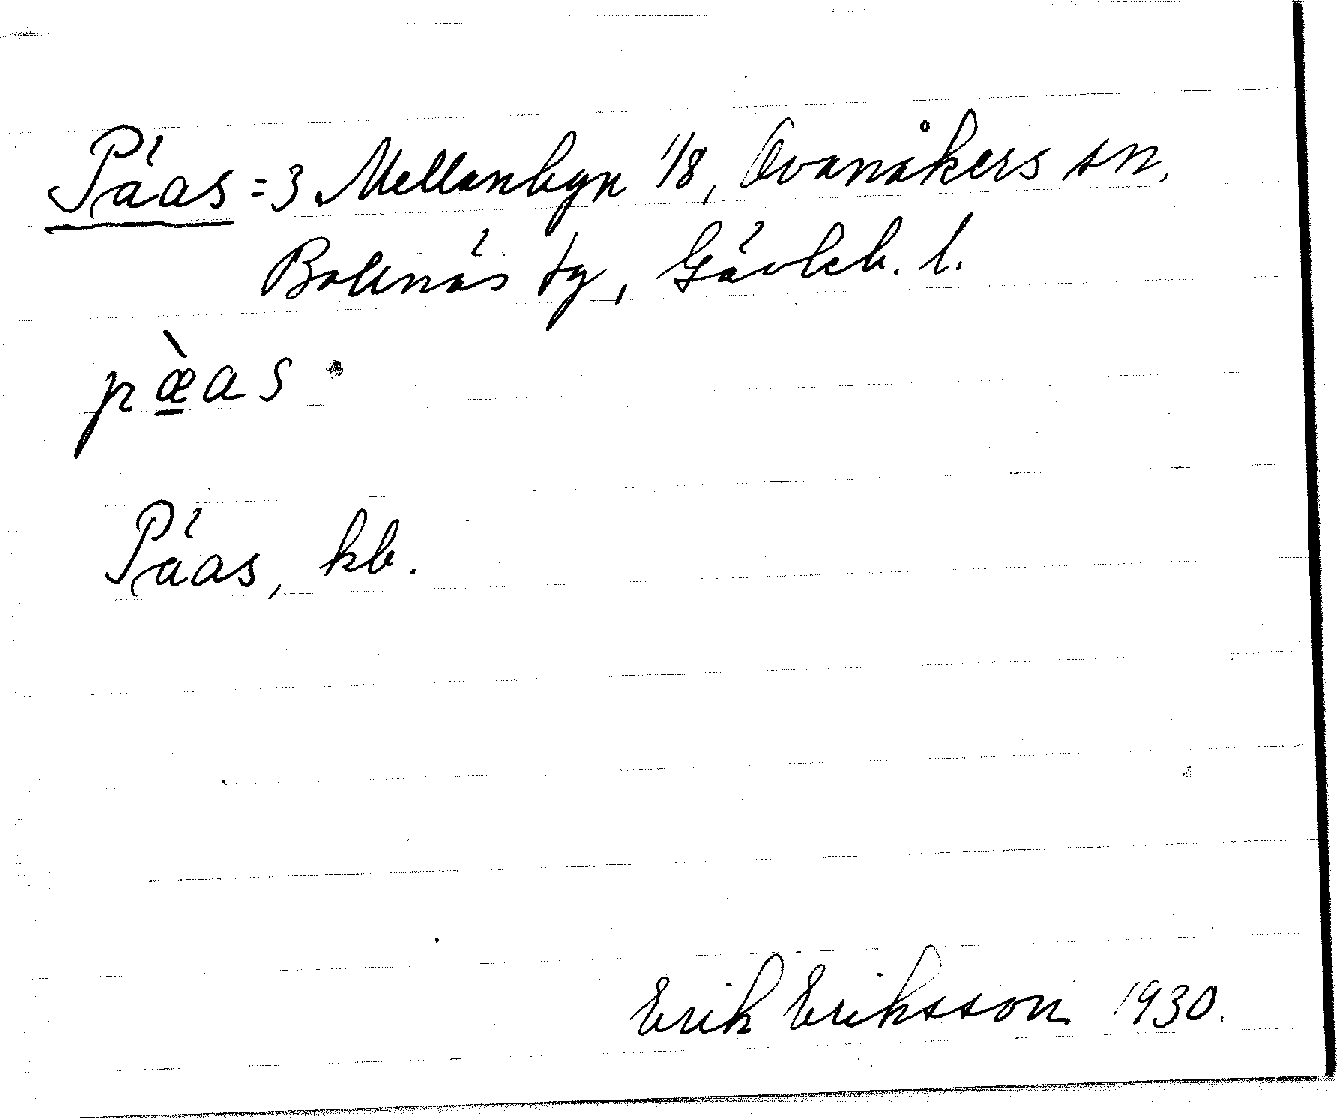 Päas = 3 Mellanbyn 1/8, Ovanåkers sn.
Bollnäs tg, Gävleb. l.
pæ̱̀as
Päas, kb.
Erik Eriksson 1930.